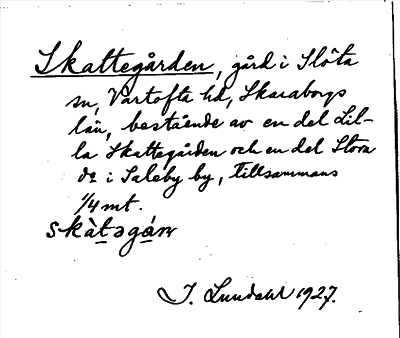 Skattegården, gård i Slöta
sn, Vartofta hd, Skaraborgs
län, bestående av en del Lil-
la Skattegården och en del Stora
do i Saleby by, tillsammans
1/4 mt.
skàtəgán
J. Lundahl 1927.